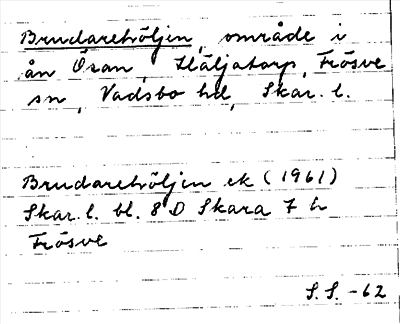 Brudarehöljen, område i
ån Ösan, Häljatorp, Frösve
sn, Vadsbo hd, Skar. l.
Brudarehöljen ek (1961)
Skar. l. bl. 8 D Skara 7 h
Frösve
S.S. -62